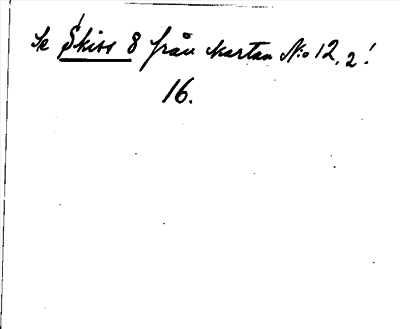 Se Skiss 8 från kartan No 12, 2!
16.